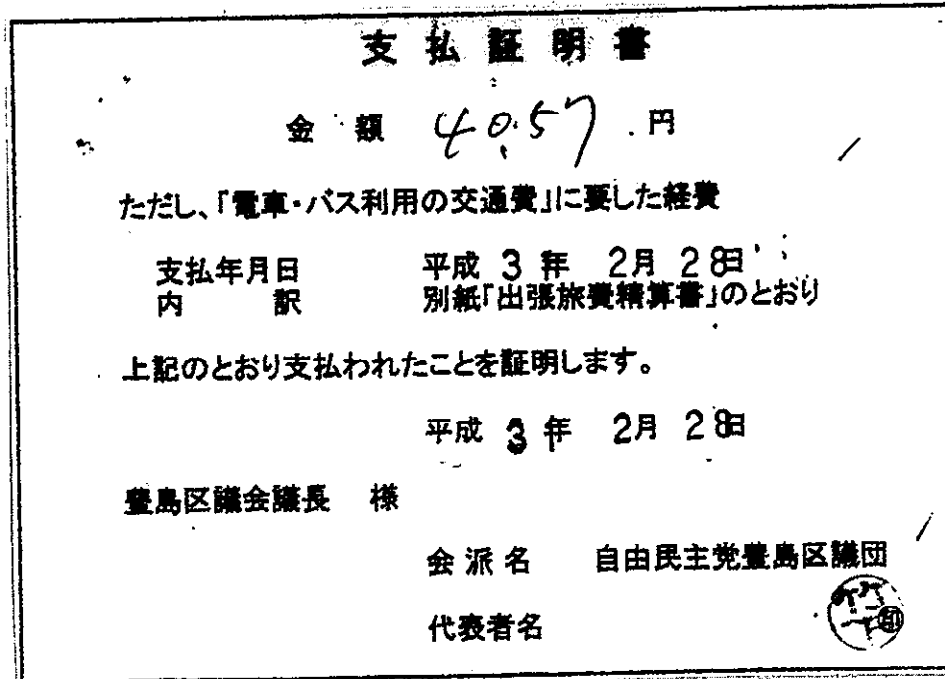 支払証明書
金額 4057 円
ただし、「電車・バス利用の交通費」に要した経費
支払年月日 平成 3 年 2月 28日
内訳 別紙「出張旅費精算書」のとおり
上記のとおり支払われたことを証明します。
平成 3 年 2月 28日
豊島区議会議長 様
会派名 自由民主党豊島区議団
代表者名 印